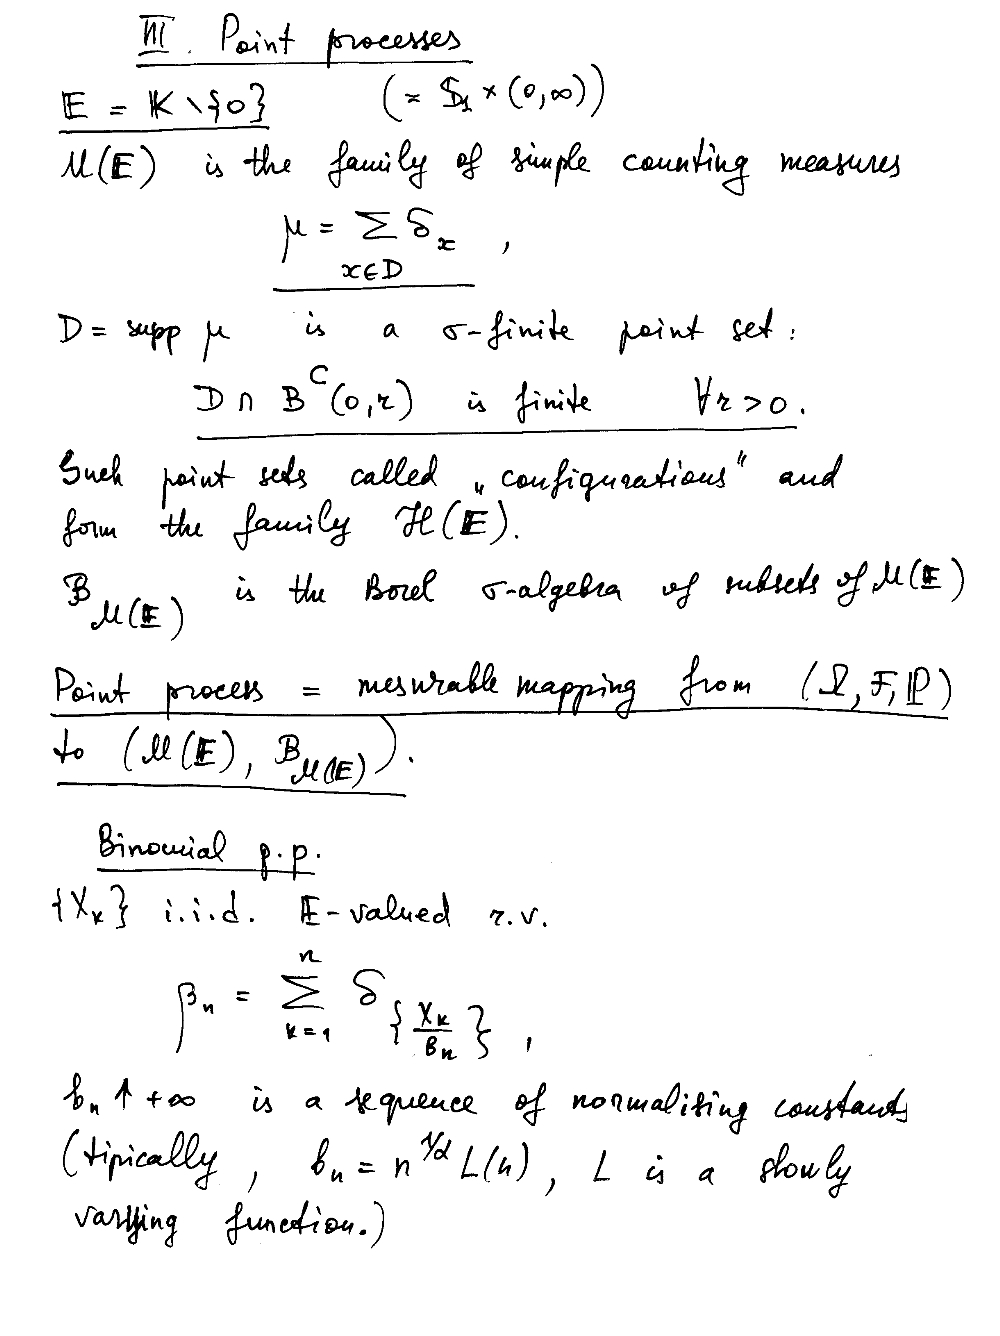 III. Point processes
𝔼 = 𝕂 \ {0} (= 𝕊₁ × (0,∞))
ℳ(𝔼) is the family of simple counting measures
μ = Σ δ_x ,
x∈D
D = supp μ is a σ-finite point set:
D ∩ B^C(0,r) is finite ∀r>0.
Such point sets called „configurations" and
form the family ℋ(𝔼).
ℬ_ℳ(𝔼) is the Borel σ-algebra of subsets of ℳ(𝔼)
Point process = mesurable mapping from (Ω, ℱ, ℙ)
to (ℳ(𝔼), ℬ_ℳ(𝔼)).
Binomial p.p.
{X_k} i.i.d. 𝔼-valued r.v.
β_n = Σ_{k=1}^{n} δ_{{X_k / b_n}} ,
b_n ↑ +∞ is a sequence of normalising constants
(tipically, b_n = n^{1/α} L(n), L is a slowly
varying function.)